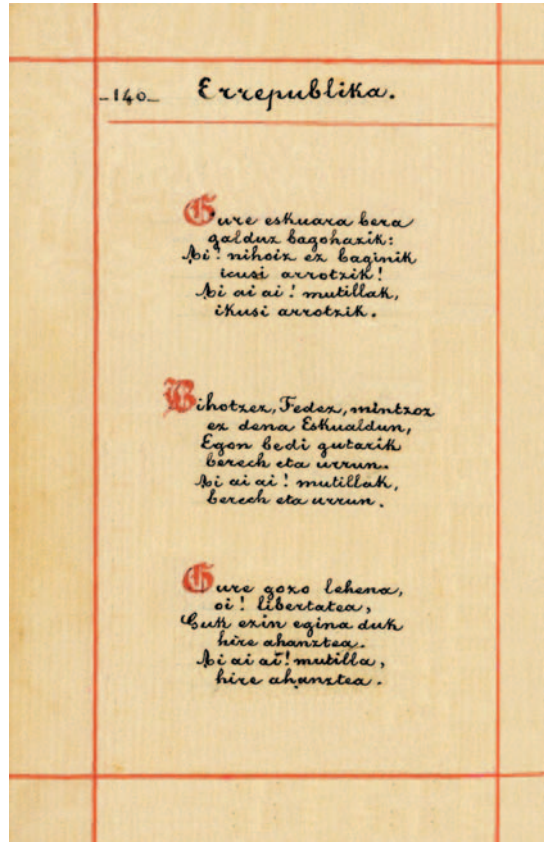 -140- Errepublika.
Gure eskuara bera
galduz bagohazik:
Ai! nihoiz ez baginik
icusi arrotzik!
Ai ai ai! mutillak,
ikusi arrotzik.
Bihotzez, Fedez, mintzoz
ez dena Eskualdun,
Egon bedi gutarik
berech eta urrun.
Ai ai ai! mutillak,
berech eta urrun.
Gure gozo lehena,
oi! libertatea,
Guk ezin egina duk
hire ahanztea.
Ai ai ai! mutilla,
hire ahanztea.